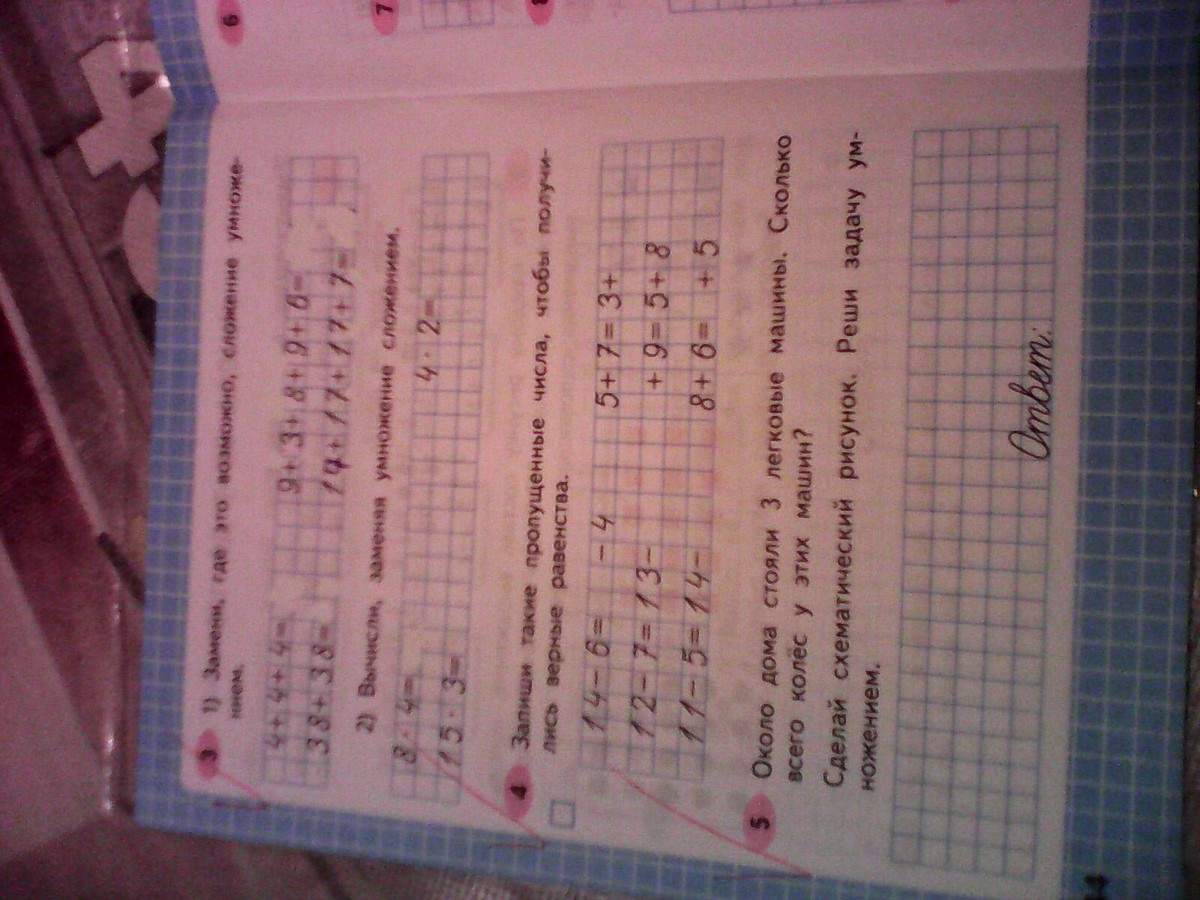 3 1) Замени, где это возможно, сложение умноже-
нием.
4+4+4= 9+3+8+9+6=
38+38= 17+17+17+17+7=
2) Вычисли, заменяя умножение сложением.
8·4= 4·2=
15·3=
4 Запиши такие пропущенные числа, чтобы получи-
лись верные равенства.
14-6= -4 5+7=3+
12-7=13- +9=5+8
11-5=14- 8+6= +5
5 Около дома стояли 3 легковые машины. Сколько
всего колёс у этих машин?
Сделай схематический рисунок. Реши задачу ум-
ножением.
Ответ:
6
7